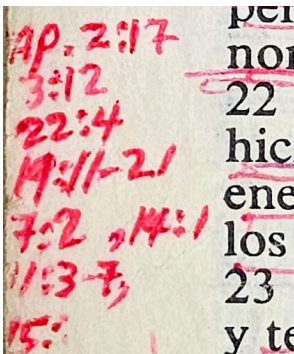 Ap. 2:17
3:12
22:4
19:11-21
7:2, 14:1
11:3-7,
15:
22
hic
ene
los
23
y te